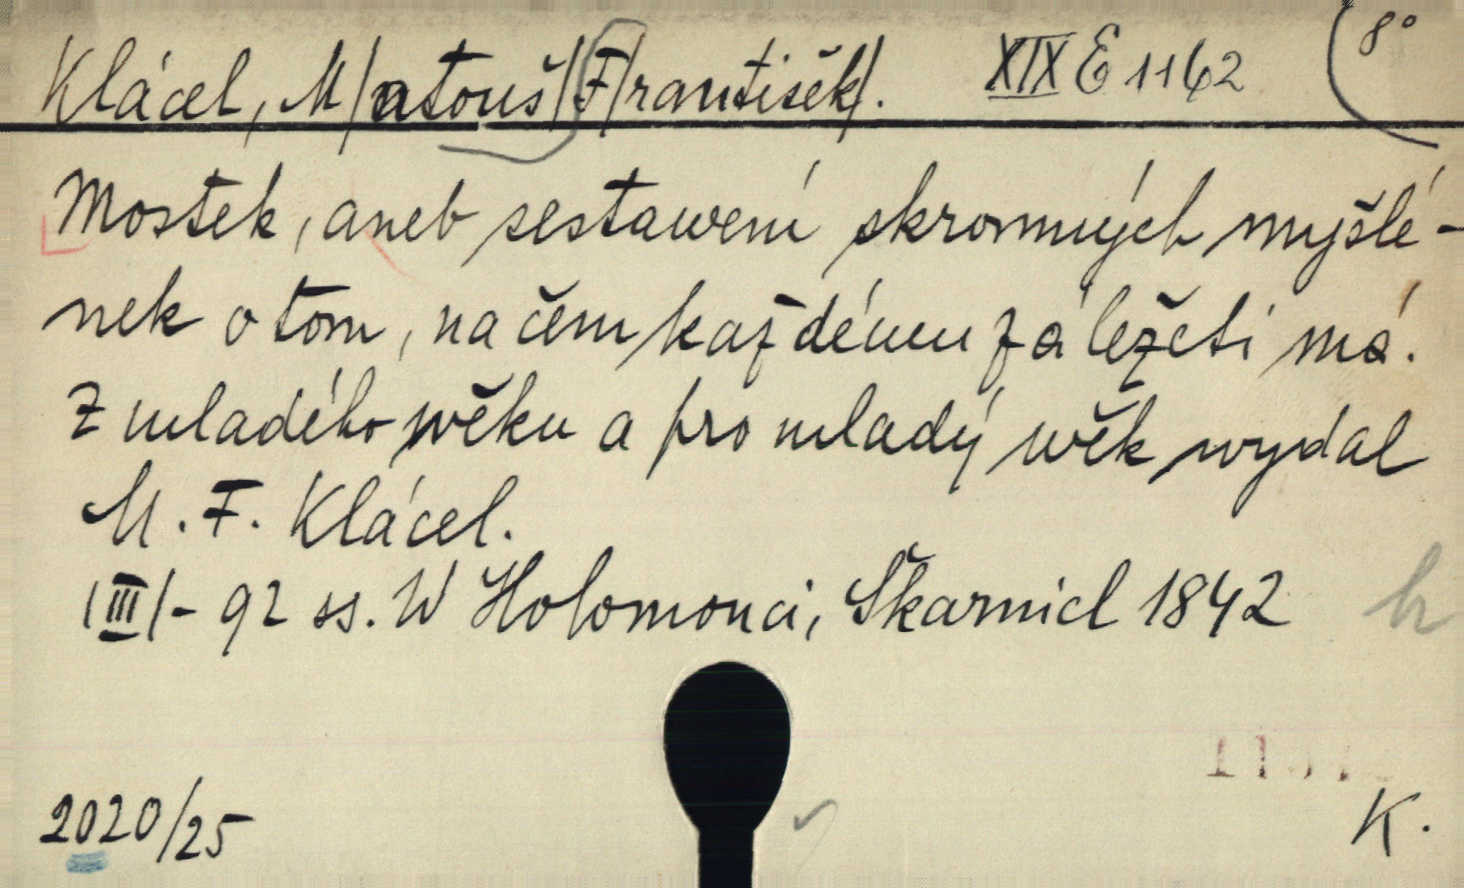 Klácel, M/atouš/ F/rantišek/. XIX E 1162 8°
Mostek, aneb sestawení skromných myšlé-
nek o tom, na čem každému záležeti má.
Z mladého wěku a pro mladý wěk wydal
M. F. Klácel.
/III/- 92 ss. W Holomouci, Škarnicl 1842
2020/25
K.